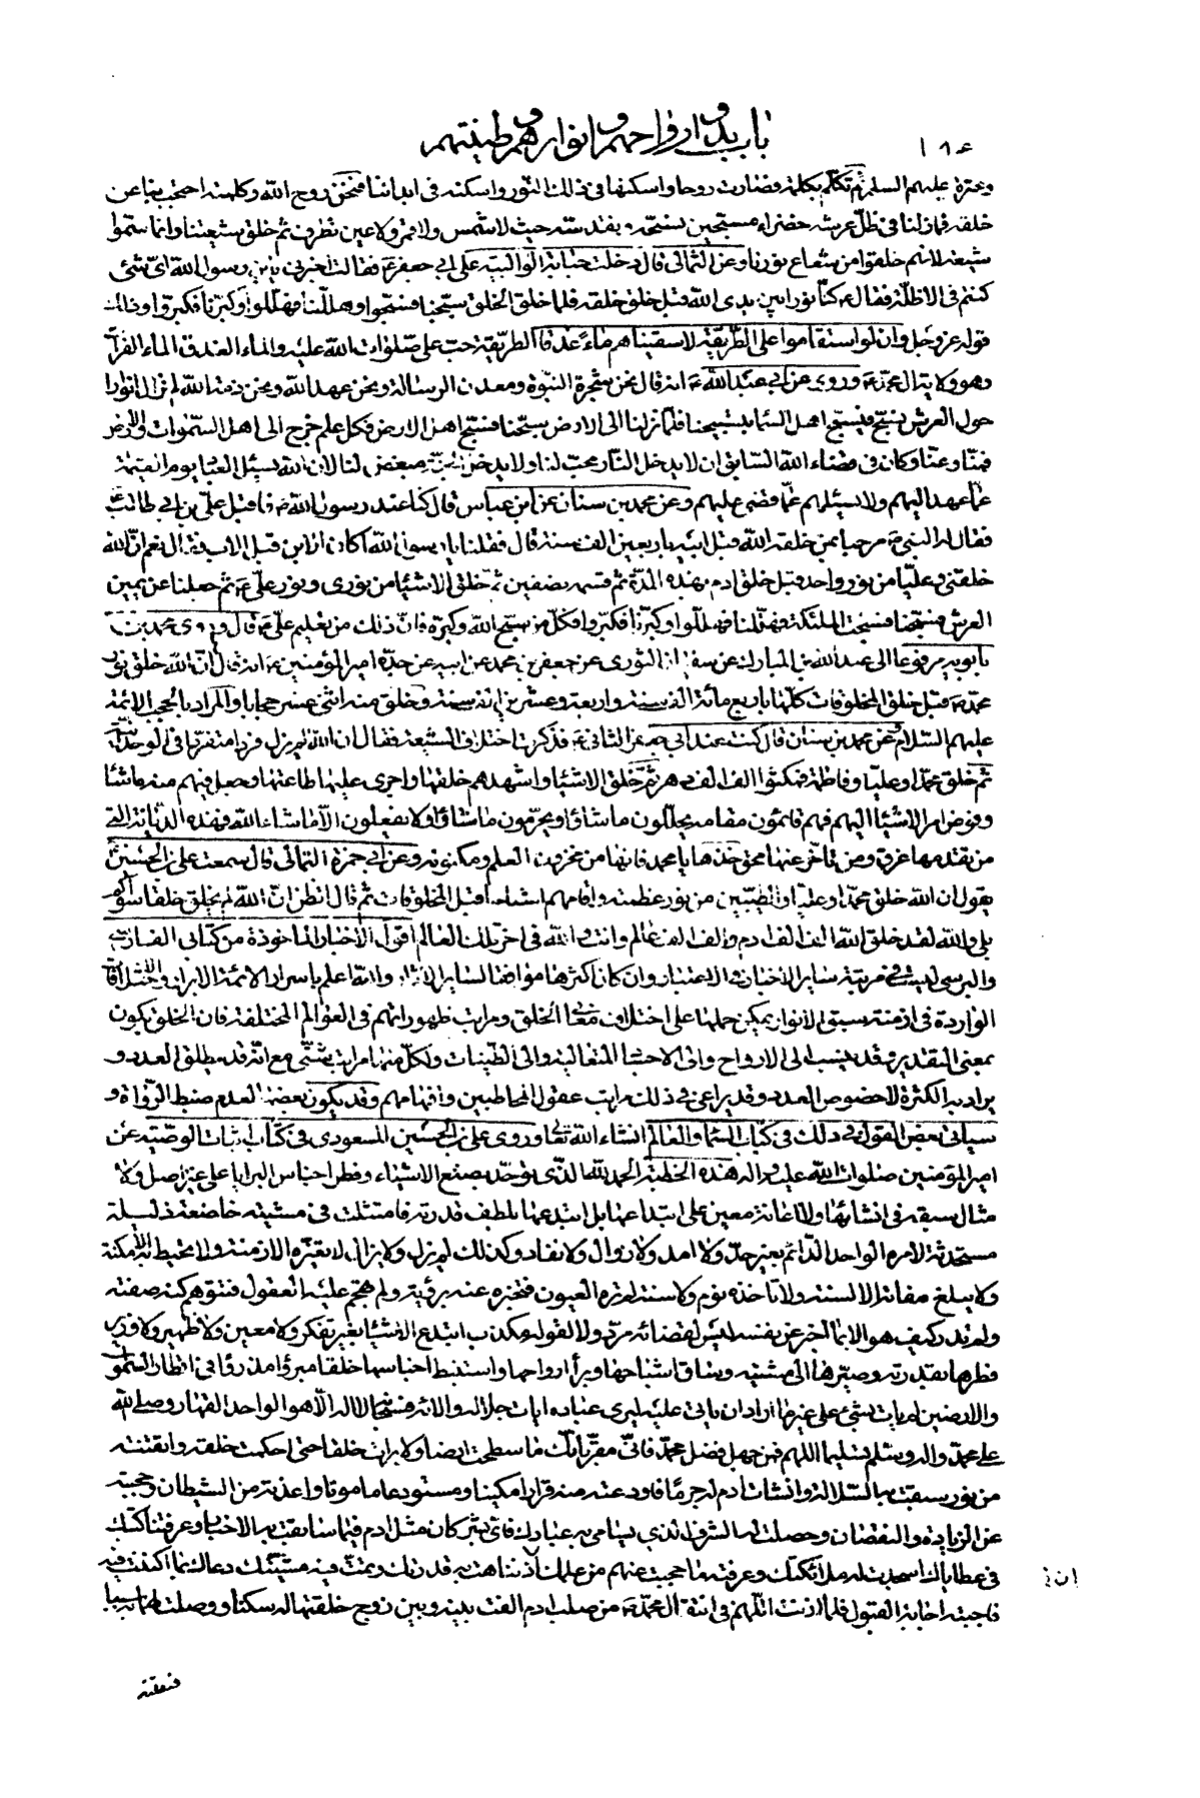 باب بدو ارواحهم و انوارهم و طينتهم
١٨٤
وعترته عليهم السلم ثم تكلم بكلمة فصارت روحا واسكنها فى ذلك النور واسكنه فى ابداننا فنحن روح الله وكلمته احتجب بنا عن
خلقه فما زلنا فى ظل عرشه خضراء مسبحين نسبحه ونقدسه حيث لا شمس ولا قمر ولا عين تطرف ثم خلق شيعتنا وانما سموا
شيعة لانهم خلقوا من شعاع نورنا وعن الثمالى قال دخلت حبابة الوالبية على ابى جعفر ع فقالت اخبرنى يابن رسول الله اى شئ
كنتم فى الاظلة فقال ع كنا نورا بين يدى الله قبل خلق خلقه فلما خلق الخلق سبحنا فسبحوا وهللنا فهللوا وكبرنا فكبروا وذلك
قوله عز وجل وان لو استقاموا على الطريقة لاسقيناهم ماء غدقا الطريقة حب على صلوات الله عليه والماء الغدق الماء الفرات
وهو ولاية ال محمد ع وروى عن ابى عبد الله ع انه قال نحن شجرة النبوة ومعدن الرسالة ونحن عهد الله ونحن ذمة الله لم نزل انوارا
حول العرش نسبح فيسبح اهل السماء بتسبيحنا فلما نزلنا الى الارض سبحنا فسبح اهل الارض فكل علم خرج الى اهل السموات والارض
فمنا وعنا وكان فى قضاء الله السابق ان لا يدخل النار محب لنا ولا يدخل الجنة مبغض لنا لان الله يسئل العباد يوم القيمة
عما عهد اليهم ولا يسئلهم عما قضى عليهم وعن محمد بن سنان عن ابن عباس قال كنا عند رسول الله ص فاقبل على بن ابى طالب ع
فقال له النبى ص مرحبا بمن خلقه الله قبل ابيه باربعين الف سنة قال فقلنا يا رسول الله اكان الابن قبل الاب فقال نعم ان الله
خلقنى وعليا من نور واحد قبل خلق ادم بهذه المدة ثم قسمه نصفين ثم خلق الاشياء من نورى ونور على ع ثم جعلنا عن يمين
العرش فسبحنا فسبحت الملئكة فهللنا فهللوا وكبرنا فكبروا فكل من سبح الله وكبره فان ذلك من تعليم على ع قال وروى محمد بن
بابويه مرفوعا الى عبد الله بن المبارك عن سفيان الثورى عن جعفر بن محمد عن ابيه عن جده امير المؤمنين ع انه قال ان الله خلق نور
محمد ص قبل خلق المخلوقات كلها باربع مائة الف سنة واربعة وعشرين الف سنة وخلق منه اثنى عشر حجابا والمراد بالحجب الائمة
عليهم السلام عن محمد بن سنان قال كنت عند ابى جعفر الثانى ع فذكرت اختلاف الشيعة فقال ان الله لم يزل فردا متفردا فى الوحدانية
ثم خلق محمدا وعليا وفاطمة فمكثوا الف الف دهر ثم خلق الاشياء واشهدهم خلقها واجرى عليها طاعتهم وجعل فيهم منه ما شاء
وفوض امر الاشياء اليهم فهم قائمون مقامه يحللون ما شاؤا ويحرمون ما شاؤا ولا يفعلون الا ما شاء الله فهذه الديانة التى
من تقدمها غرق ومن تأخر عنها محق خذها يا محمد فانها من مخزون العلم ومكنونه وعن ابى حمزة الثمالى قال سمعت على بن الحسين ع
يقول ان الله خلق محمدا وعليا والطيبين من نور عظمته واقامهم اشباحا قبل المخلوقات ثم قال اتظن ان الله لم يخلق خلقا سواكم
بلى والله لقد خلق الله الف الف ادم والف الف عالم وانت والله فى اخر تلك العوالم اقول الاخبار الماخوذة من كتابى الفارسى
والبرسى ليست فى مرتبة ساير الاخبار فى الاعتبار وان كان اكثرها موافقا لساير الاثار والله اعلم باسرار الائمة الابرار والاختلافات
الواردة فى ازمنة سبق الانوار يمكن حملها على اختلاف معانى الخلق ومراتب ظهوراتهم فى العوالم المختلفة فان الخلق يكون
بمعنى التقدير وقد ينسب الى الارواح والى الاجساد المثالية والى الطينات ولكل منها مراتب شتى مع انه قد يطلق العدد و
يراد به الكثرة لا خصوص العدد وقد يراعى فى ذلك مراتب عقول المخاطبين وافهامهم وقد يكون بعضها لعدم ضبط الرواة و
سياتى بعض القول فى ذلك فى كتاب السماء والعالم انشاء الله تعالى وروى على بن الحسين المسعودى فى كتاب اثبات الوصية عن
امير المؤمنين صلوات الله عليه واله هذه الخطبة الحمد لله الذى توحد بصنع الاشياء وفطر اجناس البرايا على غير اصل ولا
مثال سبقه فى انشائها ولا اعانة معين على ابتداعها بل ابتدعها بلطف قدرته فامتثلت فى مشيته خاضعة ذليلة
مستحدثة لامره الواحد الدائم بغير حد ولا امد ولا زوال ولا نفاد وكذلك لم يزل ولا يزال لا يغيره الازمنة ولا يحيط به الامكنة
ولا يبلغ مقامه الالسنة ولا تاخذه نوم ولا سنة لم تره العيون فتخبر عنه برؤية ولم تهجم عليه العقول فتتوهم كنه صفته
ولم تدر كيف هو الا بما اخبر عن نفسه ليس لقضائه مرد ولا لقوله مكذب ابتدع الاشياء بغير تفكر ولا معين ولا ظهير ولا وزير
فطرها بقدرته وصيرها الى مشيته وصاغ اشباحها وبرأ ارواحها واستنبط اجناسها خلقا مبروا مذروا فى اقطار السموات
والارضين لم يات بشئ على غير ما اراد ان ياتى عليه ليرى عباده ايات جلاله والائه فسبحانه لا اله الا هو الواحد القهار وصلى الله
على محمد واله وسلم تسليما اللهم فمن جهل فضل محمد ص فانى مقر بانك ما سطحت ارضا ولا برات خلقا حتى احكمت خلقه واتقنته
من نور سبقت به السلالة وانشات ادم له جرما فاودعته منه قرارا مكينا ومستودعا مامونا واعذته من الشيطان وحجبته
عن الزيادة والنقصان وحصلت له الشرف الذى يسامى به عبادك فاى بشر كان مثل ادم فيما سابقت به الاخبار وعرفتنا كتبك
فى عطاياك اسجدت له ملائكتك وعرفته ما حجبت عنهم من علمك اذ تناهت به قدرتك وتمت فيه مشيتك دعاك بما اكننت فيه
فاجبته اجابة القبول فلما اذنت اللهم فى انتقال محمد ص من صلب ادم الفت بينه وبين زوج خلقتها له سكنا ووصلت لهما به سببا
فنقلته